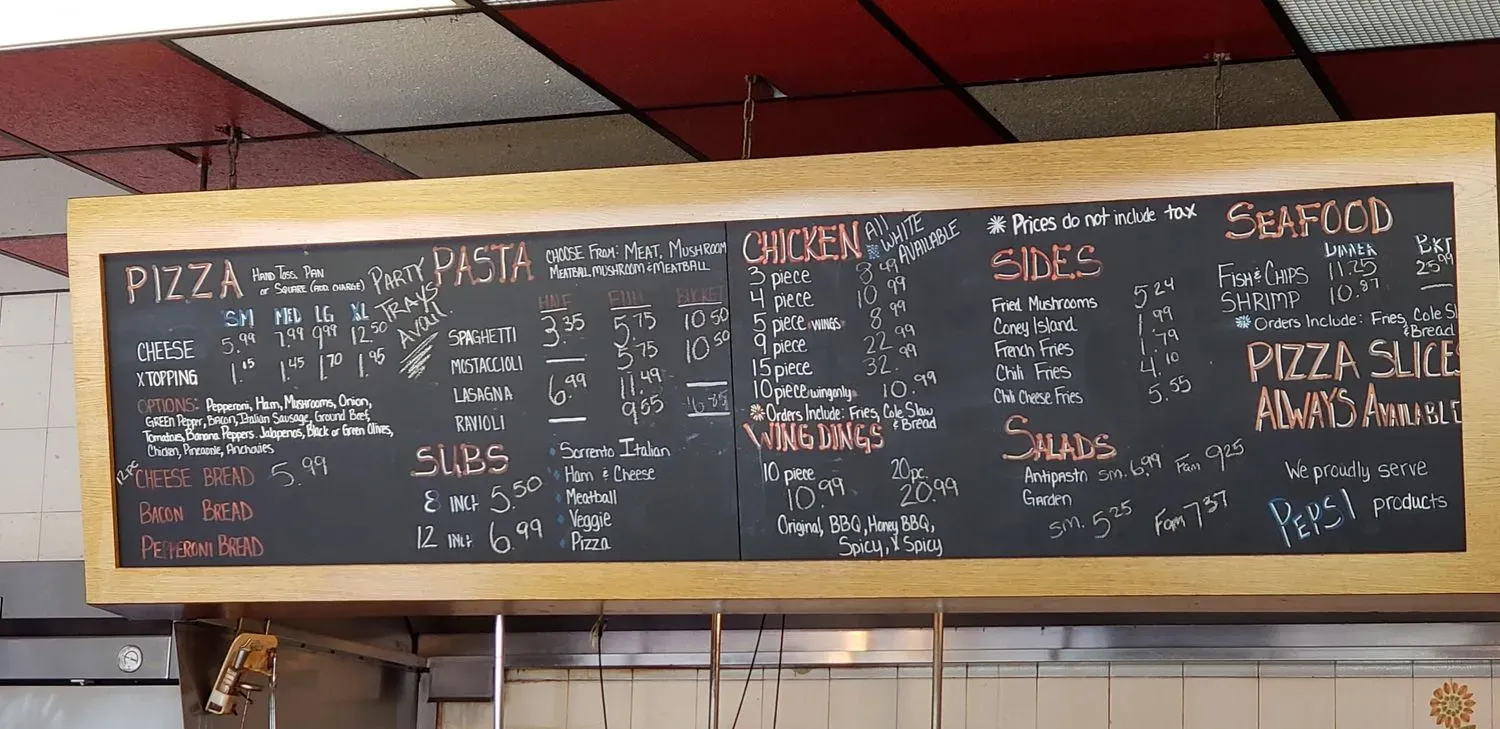 PIZZA
HAND TOSS, PAN
or SQUARE (ADD. CHARGE)
PARTY
TRAYS
Avail.
SM MED LG XL
CHEESE 5.99 7.99 9.99 12.50
X TOPPING 1.15 1.45 1.70 1.95
OPTIONS: Pepperoni, Ham, Mushrooms, Onion,
GREEN Pepper, BACON, Italian Sausage, Ground Beef,
Tomatoes, Banana Peppers. Jalapenos, Black or Green Olives,
Chicken, Pineapple, Anchovies
12 pc
CHEESE BREAD 5.99
BACON BREAD
PEPPERONI BREAD
PASTA
CHOOSE FROM: MEAT, MUSHROOM
MEATBALL, MUSHROOM & MEATBALL
HALF FULL BUCKET
SPAGHETTI 3.35 5.75 10.50
MOSTACCIOLI — 5.75 10.50
LASAGNA 6.99 11.49 —
RAVIOLI — 9.55
SUBS
8 INCH 5.50
12 INCH 6.99
Sorrento Italian
Ham & Cheese
Meatball
Veggie
Pizza
CHICKEN
All
WHITE
AVAILABLE
3 piece 8.49
4 piece 10.99
5 piece WINGS 8.99
9 piece 22.99
15 piece 32.99
10 piece wing only 10.99
Orders Include: Fries, Cole Slaw
& Bread
WING DINGS
10 piece 20 pc.
10.99 20.99
Original, BBQ, Honey BBQ,
Spicy, X Spicy
* Prices do not include tax
SIDES
Fried Mushrooms 5.24
Coney Island 1.99
French Fries 1.79
Chili Fries 4.10
Chili Cheese Fries 5.55
SALADS
Antipasto sm. 6.99 Fam 9.25
Garden
sm. 5.25 Fam 7.37
SEAFOOD
DINNER BKT
FISH & CHIPS 11.25 25.99
SHRIMP 10.87 —
Orders Include: Fries, Cole Sl
& Bread
PIZZA SLICES
ALWAYS AVAILABLE
We proudly serve
PEPSI products